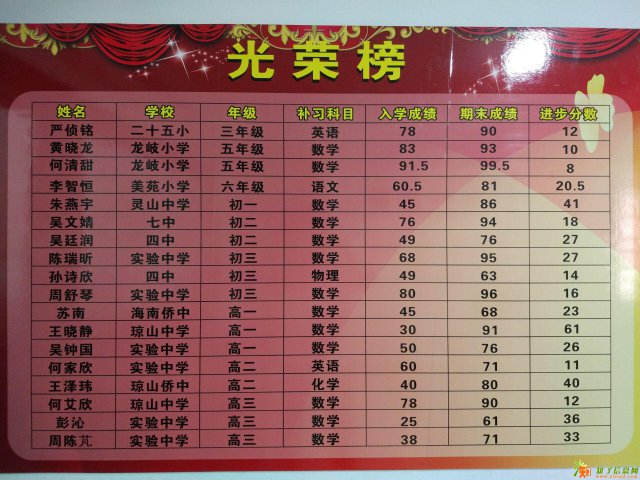 光荣榜
姓名 学校 年级 补习科目 入学成绩 期末成绩 进步分数
严侦铭 二十五小 三年级 英语 78 90 12
黄晓龙 龙岐小学 五年级 数学 83 93 10
何清甜 龙岐小学 五年级 数学 91.5 99.5 8
李智恒 美苑小学 六年级 语文 60.5 81 20.5
朱燕宇 灵山中学 初一 数学 45 86 41
吴文婧 七中 初二 数学 76 94 18
吴廷润 四中 初二 数学 49 76 27
陈瑞昕 实验中学 初三 数学 68 95 27
孙诗欣 四中 初三 物理 49 63 14
周舒琴 实验中学 初三 数学 80 96 16
苏南 海南侨中 高一 数学 45 68 23
王晓静 琼山中学 高一 数学 30 91 61
吴钟国 实验中学 高一 数学 50 76 26
何家欣 实验中学 高二 英语 60 71 11
王泽玮 琼山侨中 高二 化学 40 80 40
何艾欣 琼山中学 高三 数学 78 90 12
彭沁 实验中学 高三 数学 25 61 36
周陈芃 实验中学 高三 数学 38 71 33
知了信息网